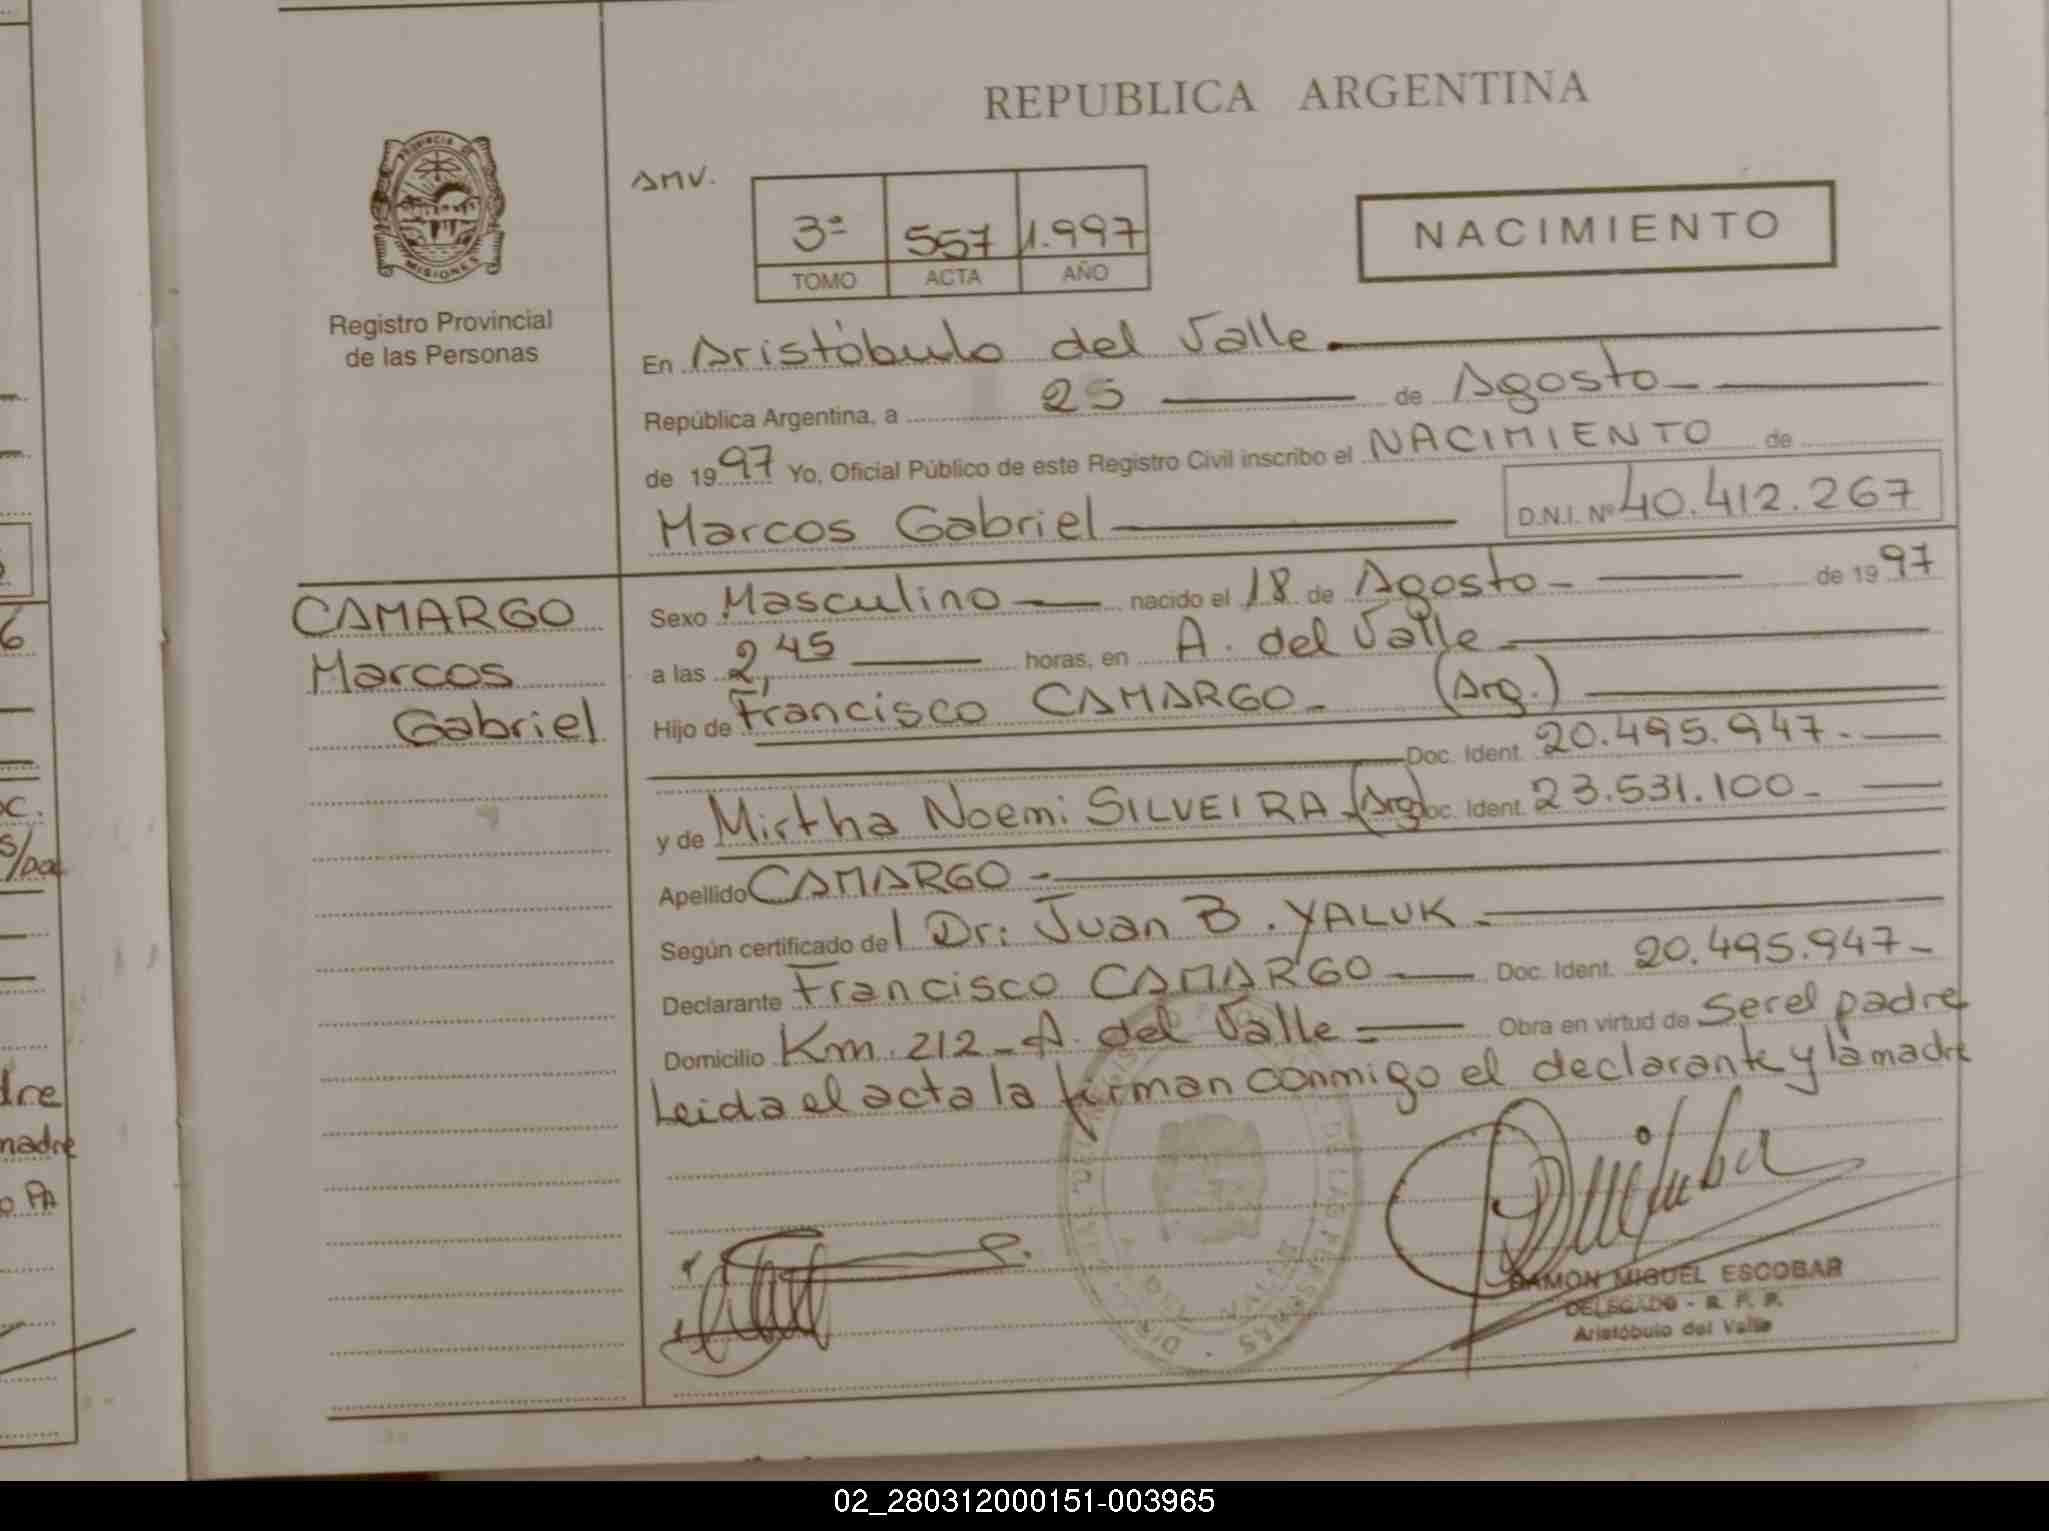 REPUBLICA ARGENTINA
PROVINCIA DE
MISIONES
Registro Provincial
de las Personas
AMV.
3ª 557 1.997
TOMO ACTA AÑO
NACIMIENTO
En Aristóbulo del Valle.
República Argentina, a 25 de Agosto
de 1997 Yo, Oficial Público de este Registro Civil inscribo el NACIMIENTO de
Marcos Gabriel D.N.I. Nº 40.412.267
CAMARGO
Marcos
Gabriel
Sexo Masculino nacido el 18 de Agosto de 1997
a las 2,45 horas, en A. del Valle
Hijo de Francisco CAMARGO (Arg.)
Doc. Ident. 20.495.947
y de Mirtha Noemi SILVEIRA (Arg) Doc. Ident. 23.531.100
Apellido CAMARGO
Según certificado del Dr: Juan B. YALUK
Declarante Francisco CAMARGO Doc. Ident. 20.495.947
Domicilio Km. 212 - A. del Valle Obra en virtud de ser el padre
Leida el acta la firman conmigo el declarante y la madre
RAMON MIGUEL ESCOBAR
DELEGADO - R. P. P.
Aristóbulo del Valle
6
dre
madre
02_280312000151-003965